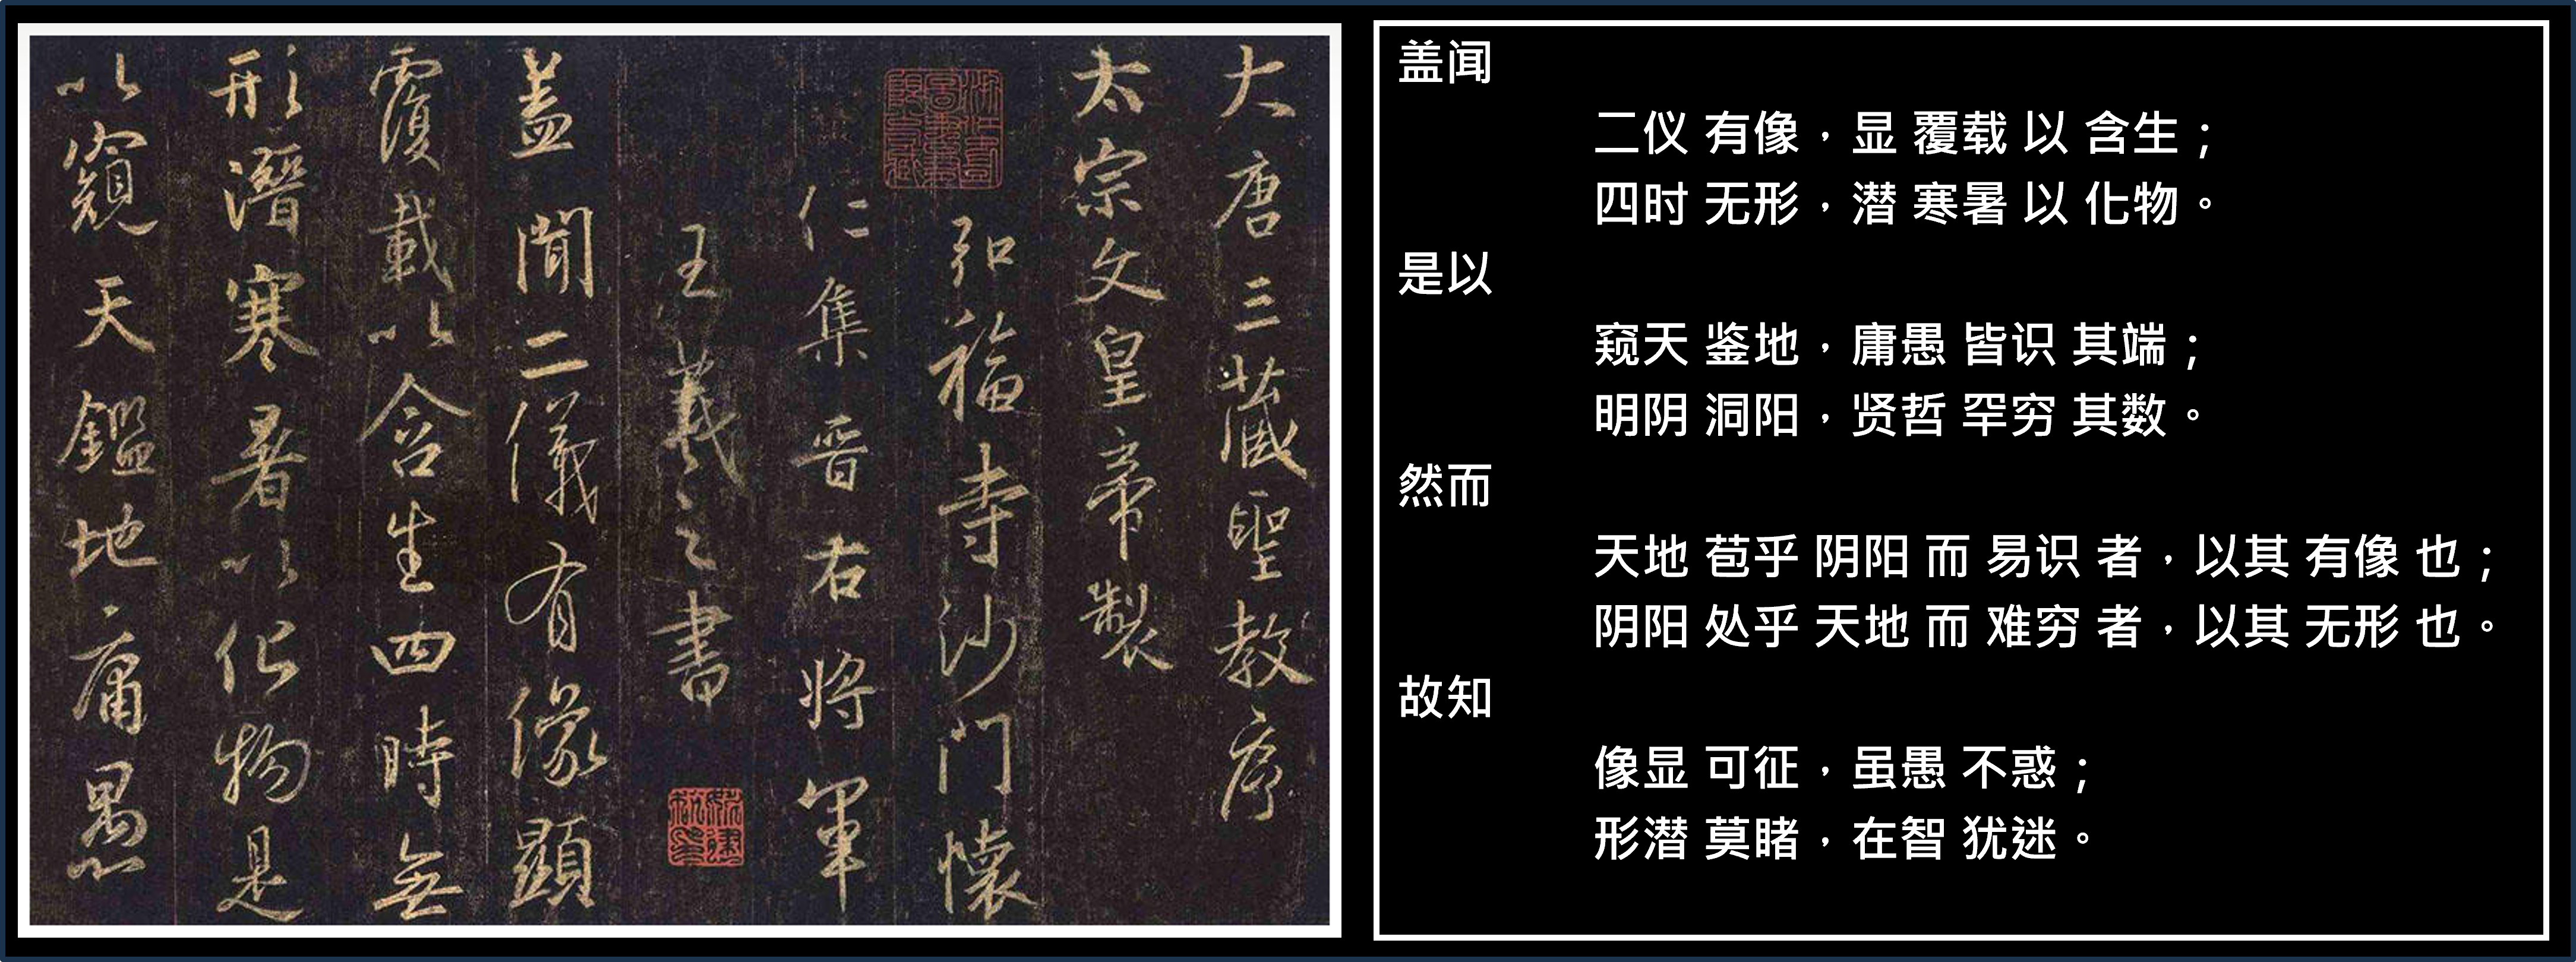 大唐三藏聖教序
太宗文皇帝製
弘福寺沙門懷
仁集晉右將軍
王羲之書
蓋聞二儀有像顯
覆載以含生四時無
形潛寒暑以化物是
以窺天鑑地庸愚
盖闻
二仪 有像，显 覆载 以 含生；
四时 无形，潜 寒暑 以 化物。
是以
窥天 鉴地，庸愚 皆识 其端；
明阴 洞阳，贤哲 罕穷 其数。
然而
天地 苞乎 阴阳 而 易识 者，以其 有像 也；
阴阳 处乎 天地 而 难穷 者，以其 无形 也。
故知
像显 可征，虽愚 不惑；
形潜 莫睹，在智 犹迷。